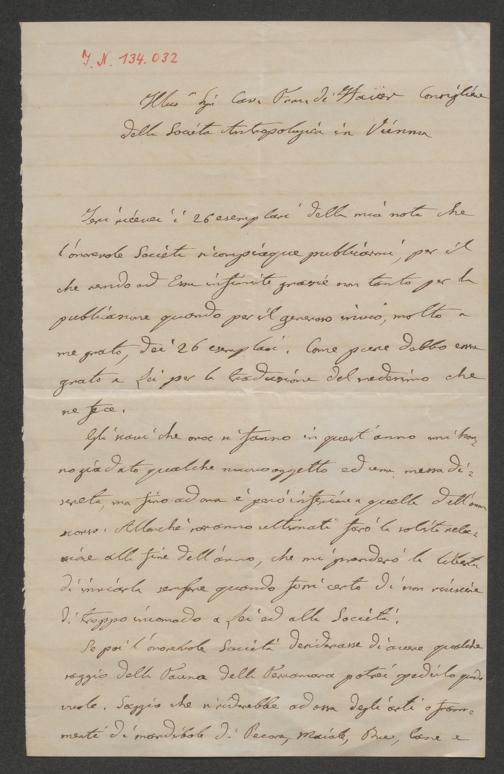 J. N. 134.032
Illus.mo Sig. Cav. Fran. di Hauer Consigliere
della Società Antropologica in Vienna
Ieri ricevei i 26 esemplari della mia nota che
l'onorevole Società si compiaque publicarmi, per il
che rendo ad Essa infinite grazie non tanto per la
publicazione quando per il generoso invio, molto a
me grato, dei 26 esemplari. Come pure debbo esser
grato a Lei per la traduzione del medesimo che
ne fece.
Gli scavi che ora si fanno in quest'anno mi han-
no già dato qualche nuovo oggetto ed una messe di-
screta, ma fino ad ora è però inferiore a quella dell'anno
scorso. Allorché saranno ultimati farò la solita rela-
zione alla fine dell'anno, che mi prenderò la libertà
di inviarla sempre quando fossi certo di non riuscire
di troppo incomodo a Lei ed alla Società.
Se poi l'onorevole Società desiderasse di avere qualche
saggio della Fauna della Terramara potrei spedirlo quando
vuole. Saggio che si ridurrebbe ad ossa degli arti o fram-
menti di mandibole di Pecora, Maiale, Bue, Cane e